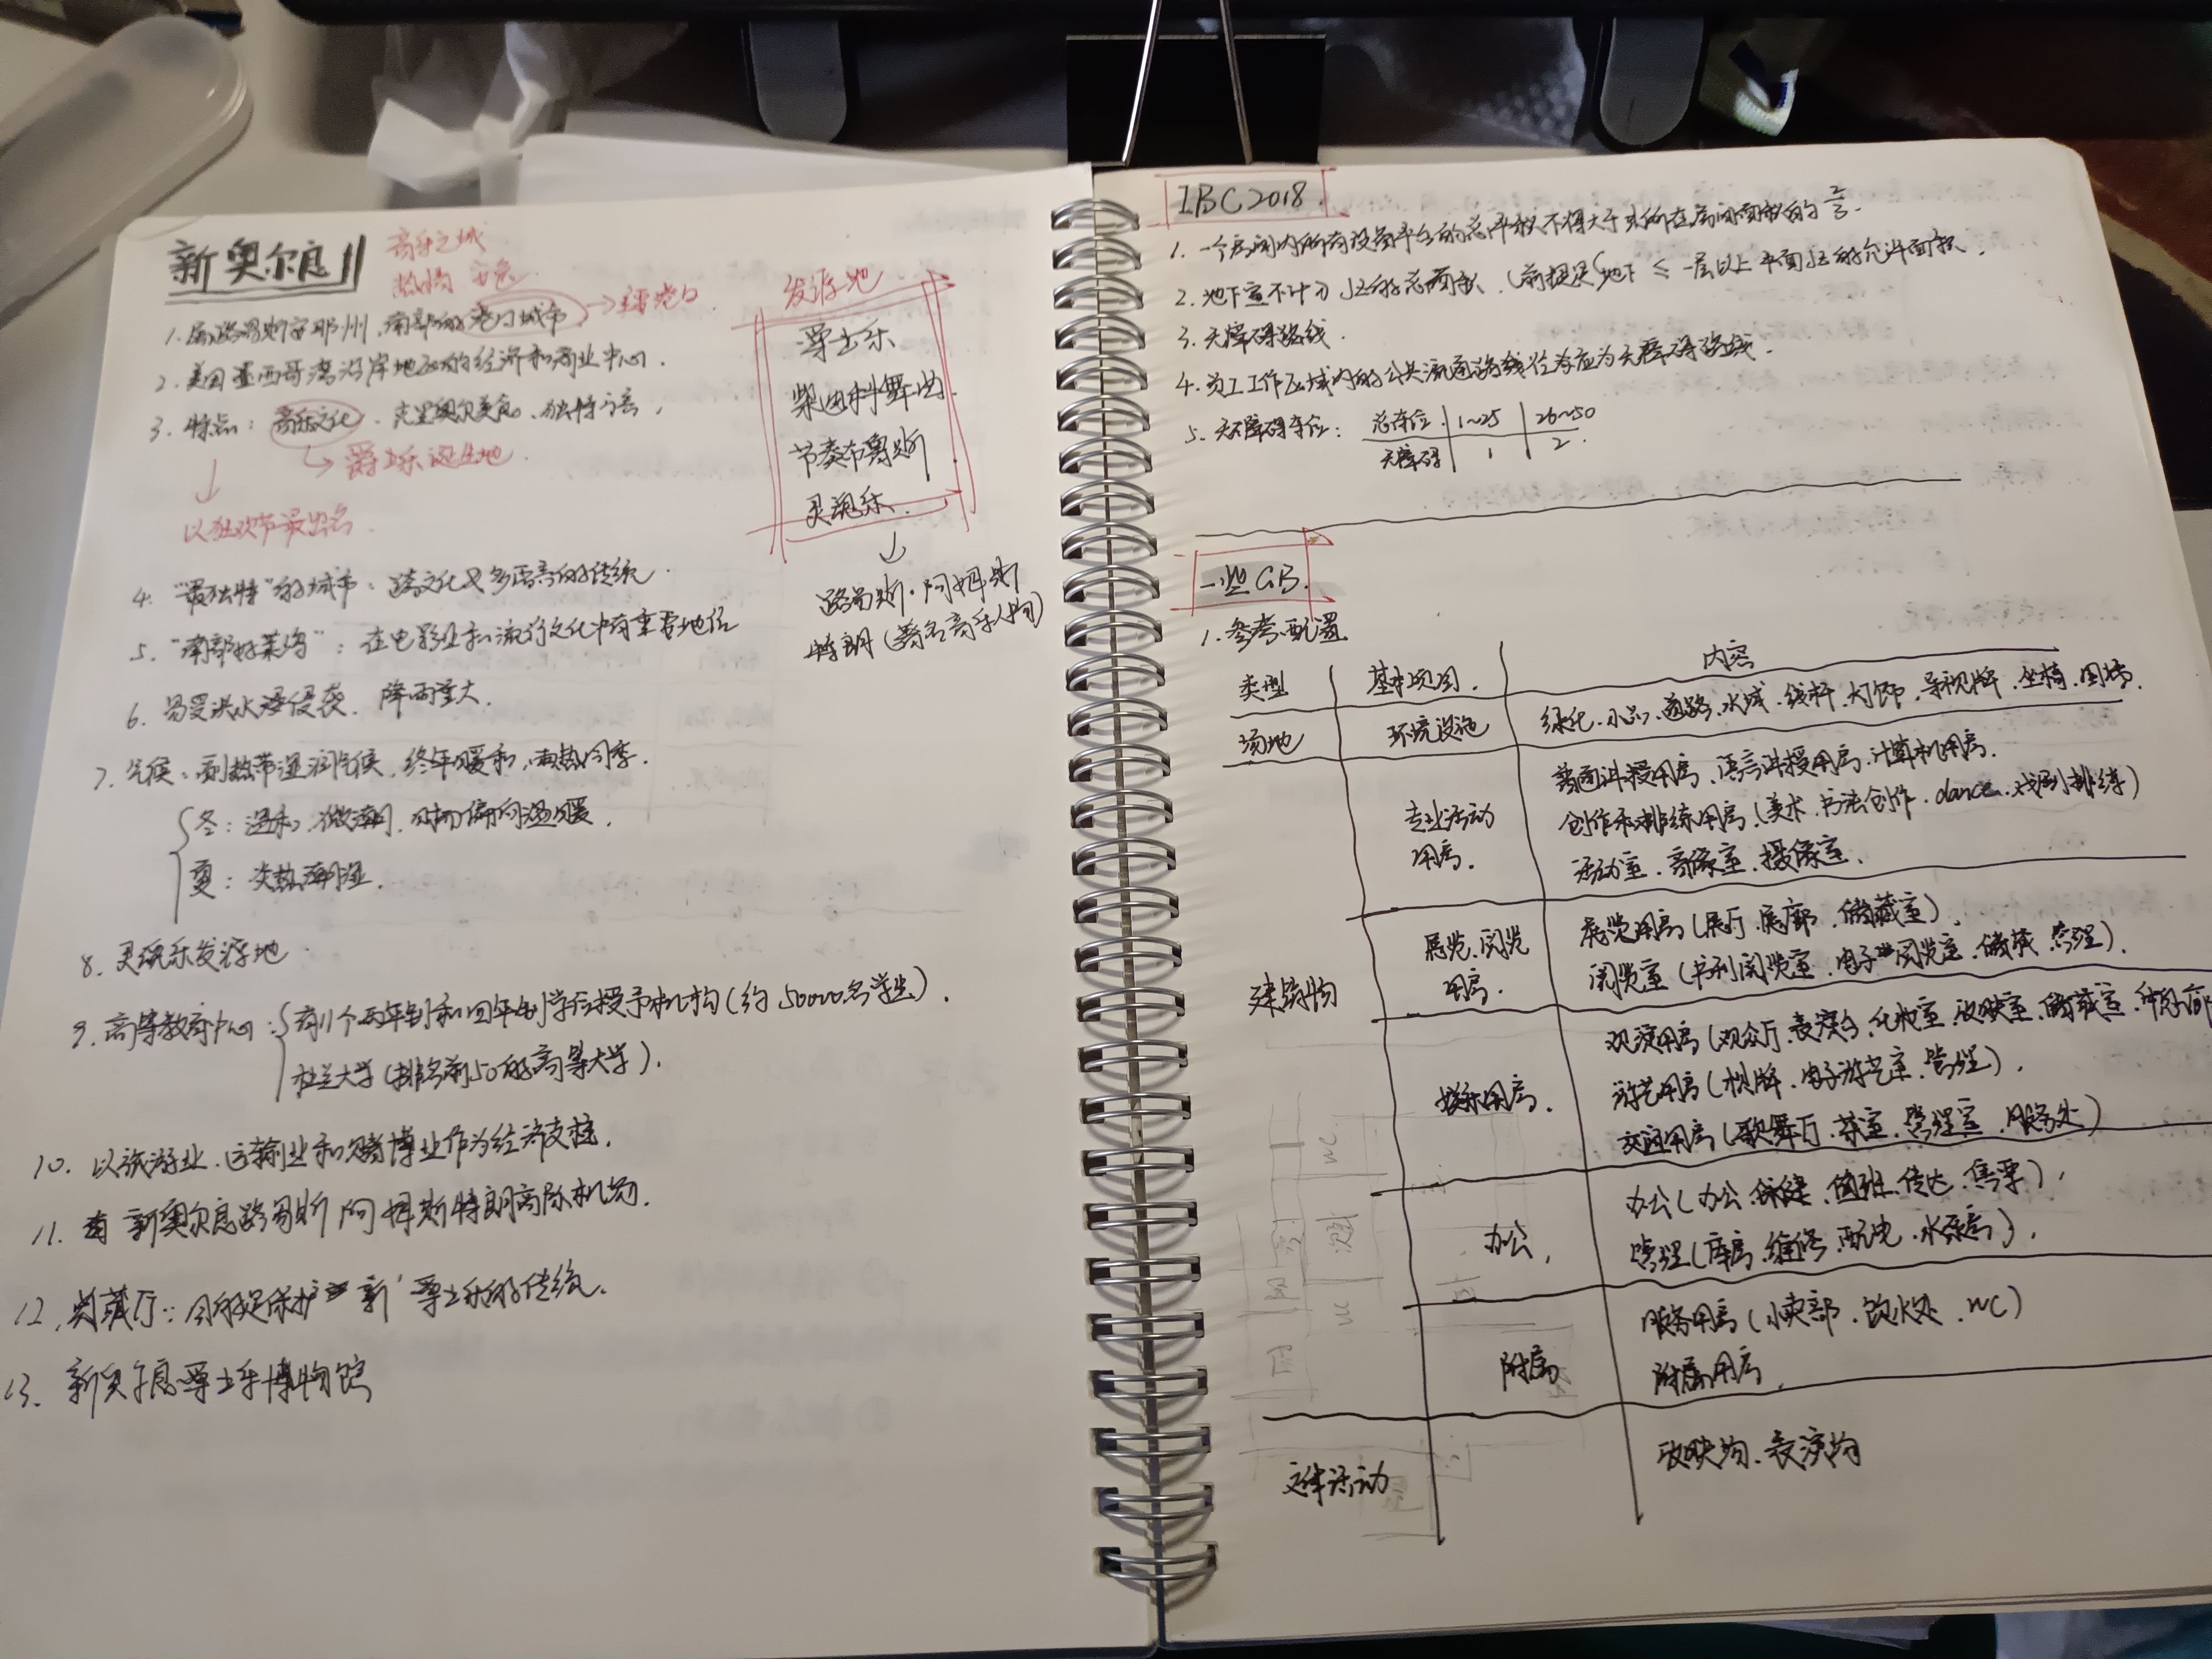 新奥尔良
音乐之城
热情
1. 属路易斯安那州,南部的港口城市
→主要港口
2. 美国墨西哥湾沿岸地区的经济和商业中心.
3. 特点:音乐文化、克里奥尔美食、独特方言,
↳ 爵士乐诞生地.
↓
以狂欢节最出名.
发源地
爵士乐
柴迪科舞曲.
节奏布鲁斯
灵魂乐.
↓
路易斯·阿姆斯
特朗(著名音乐人物)
4. “最独特”的城市:跨文化及多语言的传统.
5. “南部好莱坞”:在电影业和流行文化中有重要地位
6. 易受洪水浸侵袭. 降雨量大.
7. 气候:副热带湿润气候,终年暖和,雨热同季.
冬:温和.微潮.
夏:炎热潮湿.
8. 灵魂乐发源地.
9. 高等教育中心:有11个两年制和四年制学位授予机构(约50000名学生).
杜兰大学(排名前50的高等大学).
10. 以旅游业.运输业和赌博业作为经济支柱.
11. 有新奥尔良路易斯阿姆斯特朗国际机场.
12. 典藏厅:目的是保护新'爵士乐的传统.
13. 新奥尔良爵士乐博物馆
IBC2018.
1. 一个房间内所有设备平台的总面积不得大于其所在房间面积的2/3.
2. 地下室不计入总面积.(前提是地下≤一层以上平面的允许面积.
3. 无障碍路线.
4. 员工工作区域内的公共流通路线径亦应为无障碍路线.
5. 无障碍车位: 总车位 1~25 26~50
无障碍 1 2.
一些GB.
1. 参考配置
类型 基本项目. 内容
场地 环境设施 绿化.小品.道路.水域.线杆.灯饰.导视牌.坐椅.围墙.
建筑物
专业活动用房.
普通讲授用房.语言讲授用房.计算机用房.
创作和排练用房.(美术.书法创作.dance.戏剧排练)
活动室.音像室.摄像室.
展览.阅览用房.
展览用房(展厅.展廊.储藏室).
阅览室(书刊阅览室.电子阅览室.储藏.管理).
娱乐用房.
观演用房(观众厅.表演台.化妆室.放映室.储藏室.
游艺用房(棋牌.电子游艺室.管理).
交谊用房(歌舞厅.茶室.管理室.服务处)
办公.
办公(办公.保健.值班.传达.售票).
管理(库房.维修.配电.水泵房).
附属
服务用房(小卖部.饮水处.WC)
附属用房.
文体活动
放映场.表演场